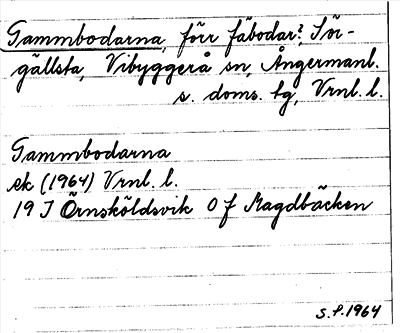 Gammbodarna, förr fäbodar? Sör-
gällsta, Vibyggerå sn, Ångermanl.
s. doms. tg, Vrnl. l.
Gammbodarna
ek (1964) Vrnl. l.
19 J Örnsköldsvik 0 f Magdbäcken
S.F. 1964